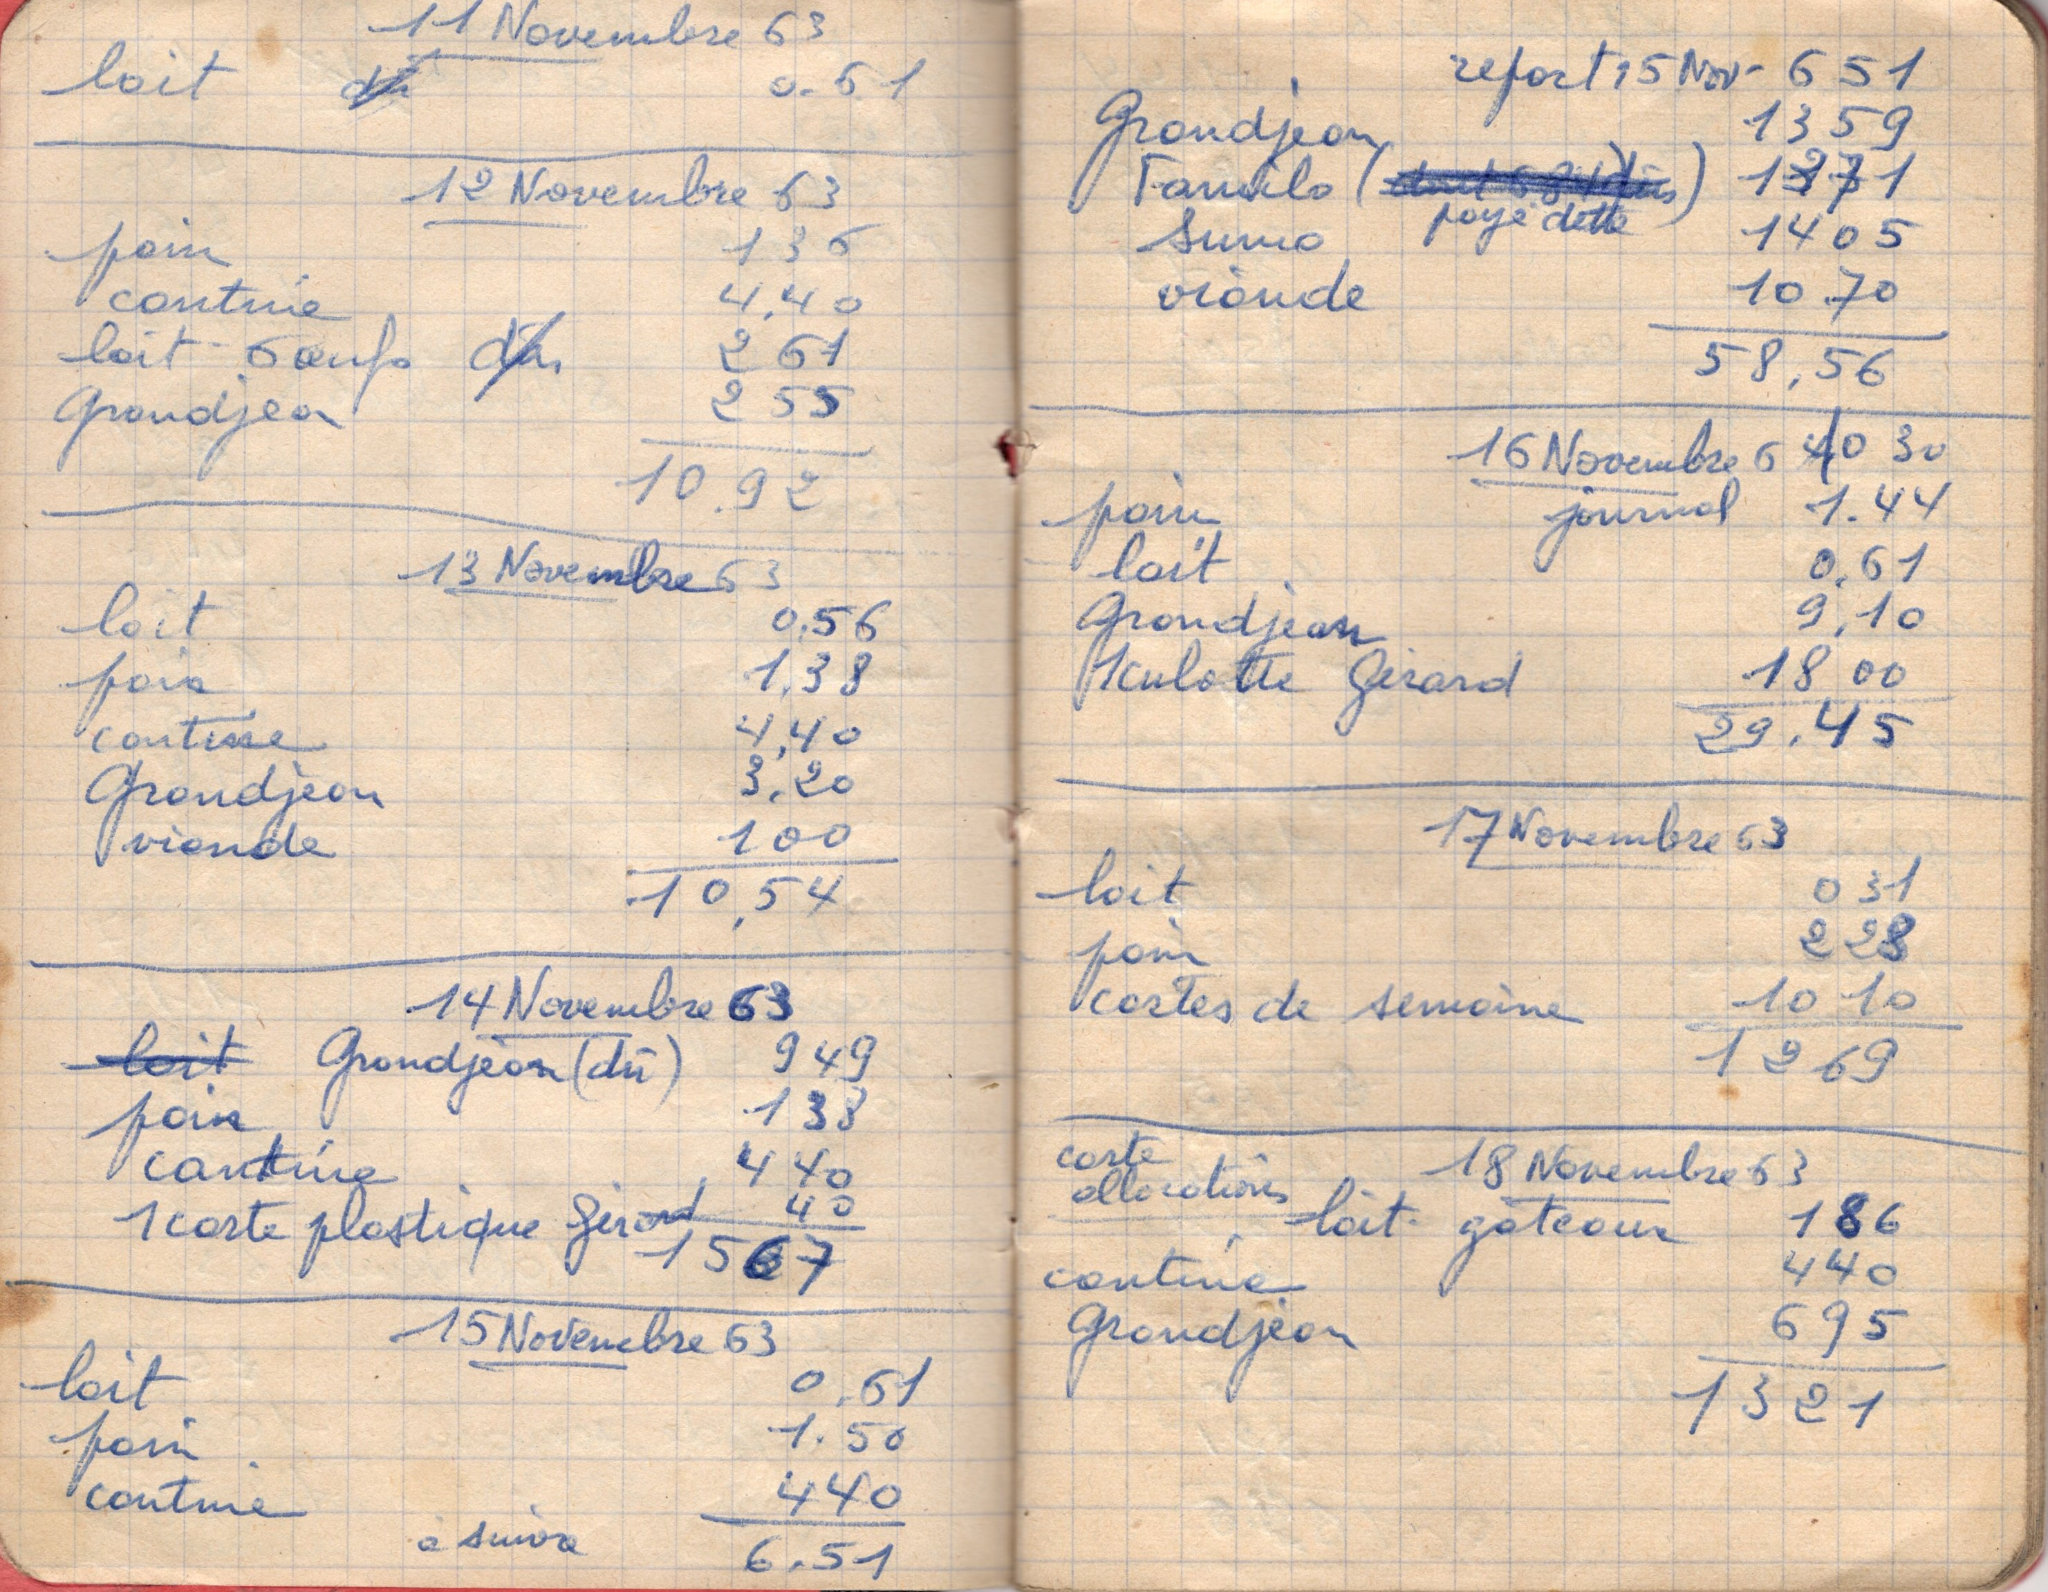 11 Novembre 63
lait dû 0.61
12 Novembre 63
pain 136
cantine 4,40
lait 6 œufs dûs 261
Grandjean 255
10.92
13 Novembre 63
lait 0,56
pain 1,38
cantine 4,40
Grandjean 3,20
viande 100
10,54
14 Novembre 63
lait Grandjean (dû) 949
pain 138
cantine 440
1 carte plastique Gérard 40
1567
15 Novembre 63
lait 0,61
pain 1.50
cantine 440
à suivre 6.51
report 15 Nov- 651
Grandjean 1359
Familo ( ) 1271
payé dette
Suma 1405
viande 10 70
58,56
16 Novembre 6 0 30
pain journal 1.44
lait 0,61
Grandjean 9,10
1 culotte Gérard 18 00
29.45
17 Novembre 63
lait 0 31
pain 228
cartes de semaine 10 10
12 69
carte
allocations 18 Novembre 63
lait gâteaux 186
cantine 440
Grandjean 695
1321